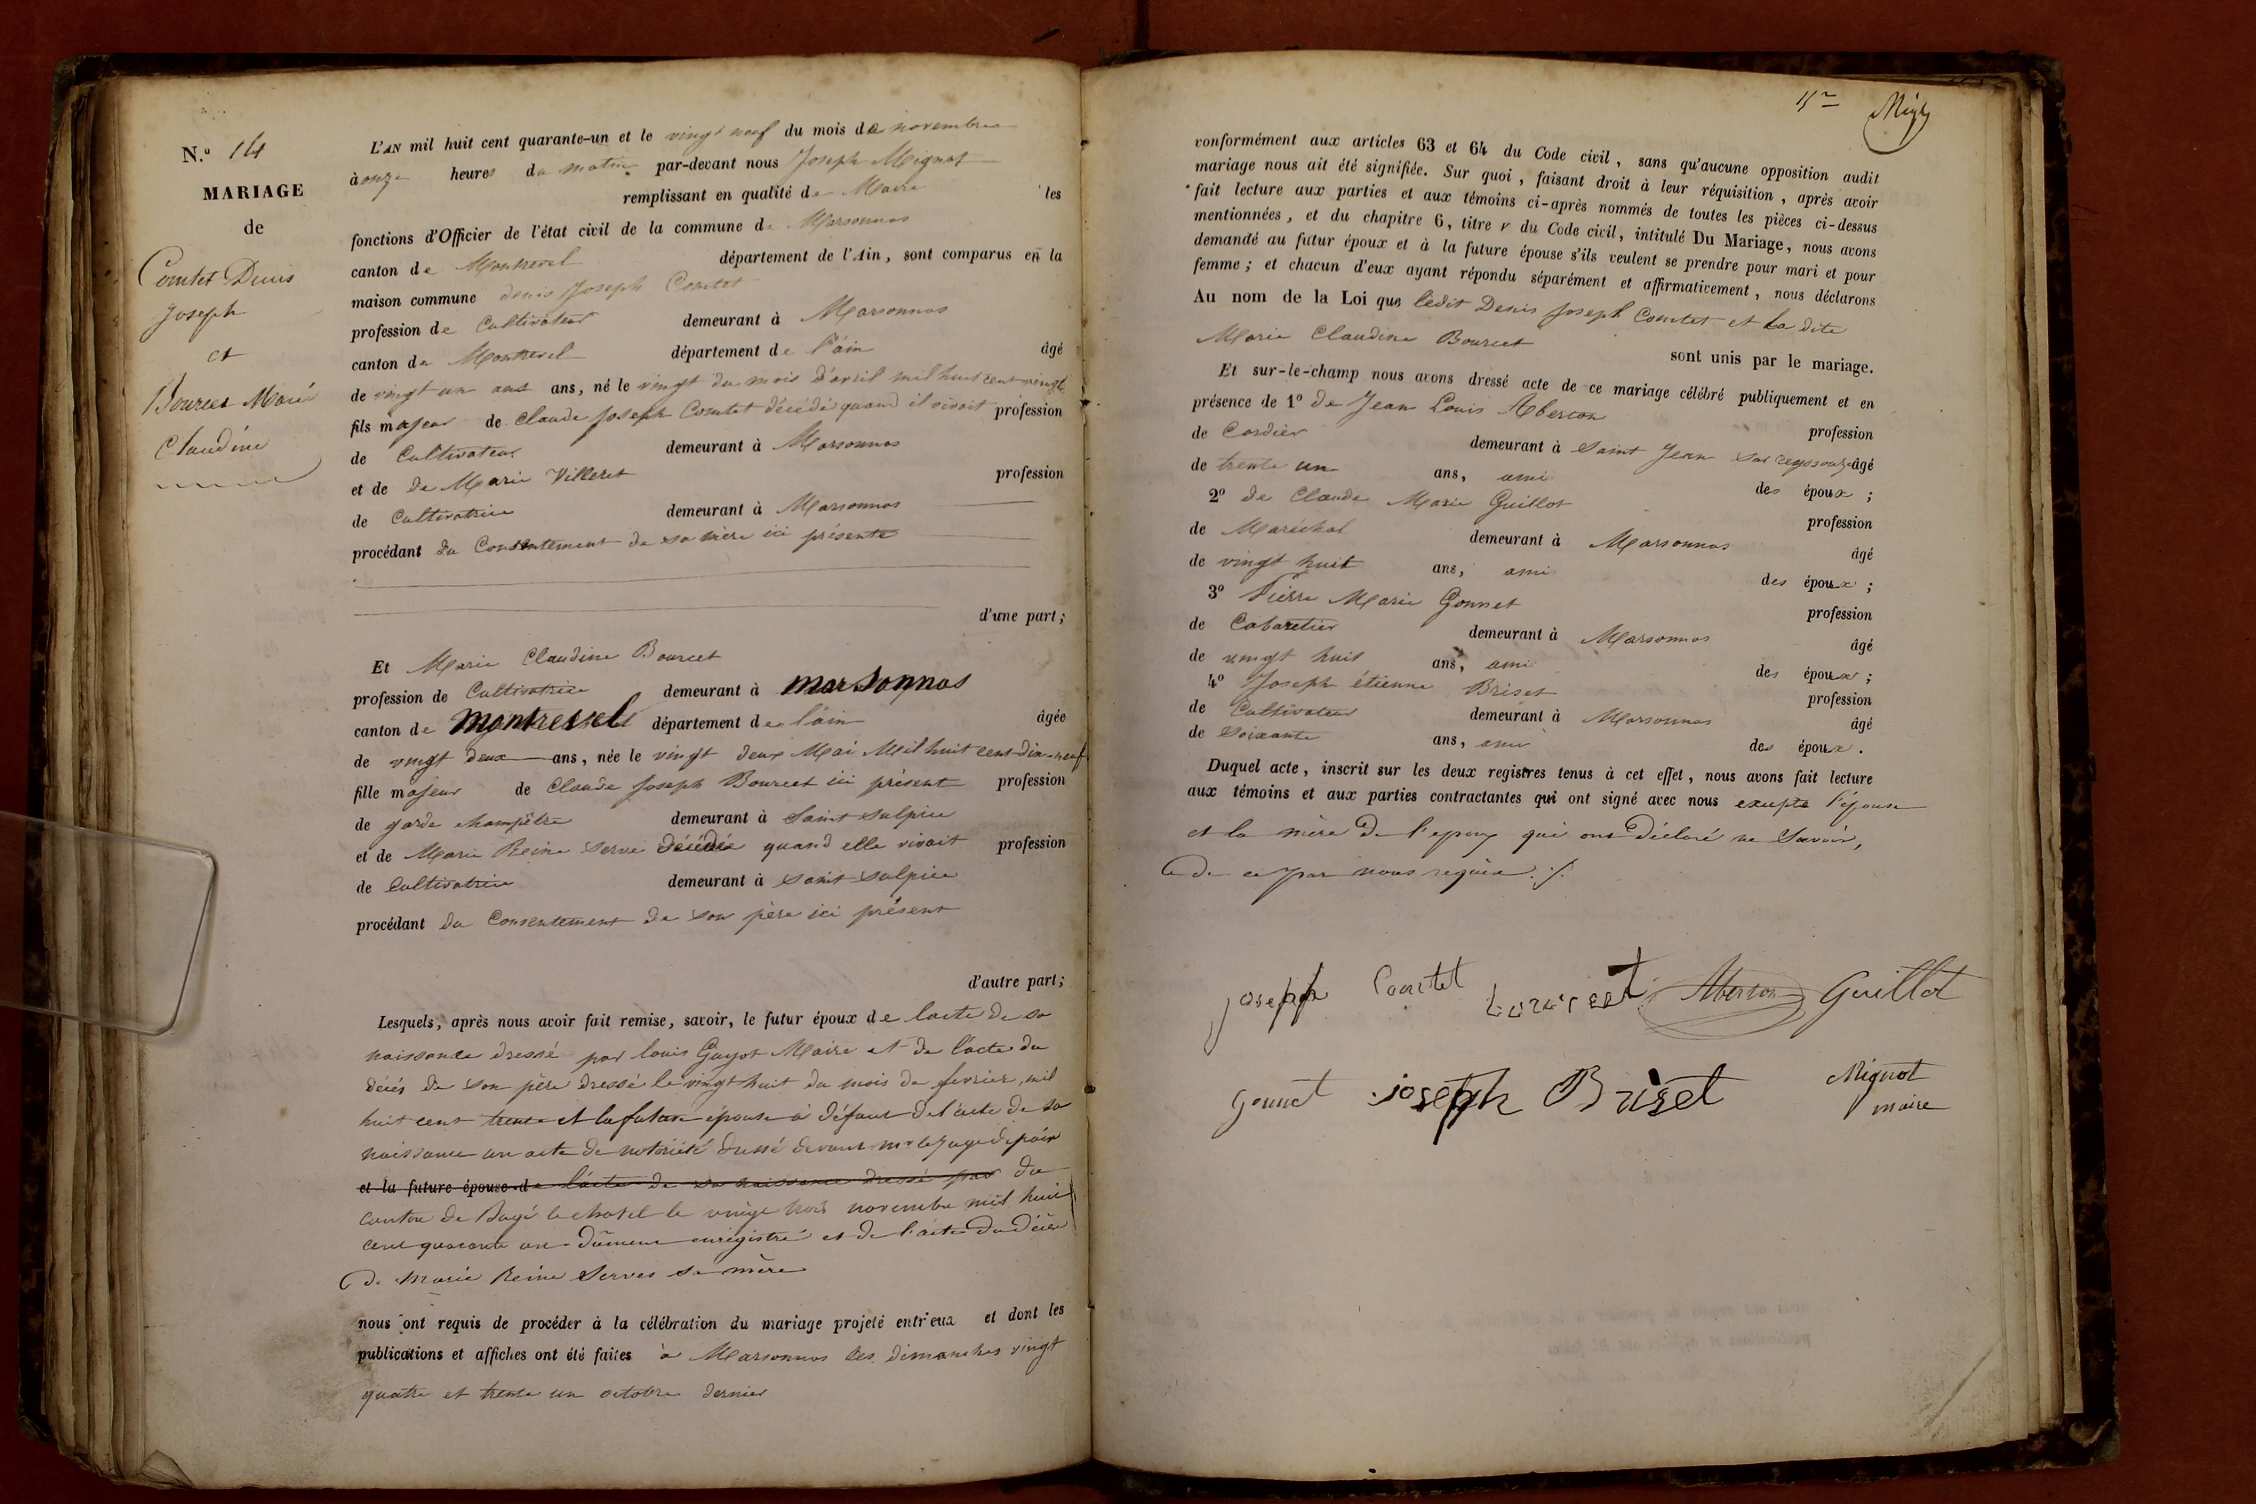 N.º 14
MARIAGE
de
Comtet Denis
Joseph
et
Bourcet Marie
Claudine
L'AN mil huit cent quarante-un et le vingt neuf du mois de novembre
à onze heures du matin par-devant nous Joseph Mignot
remplissant en qualité de Maire les
fonctions d'Officier de l'état civil de la commune de Marsonnas
canton de Montrevel département de l'Ain, sont comparus en la
maison commune denis Joseph Comtet
profession de Cultivateur demeurant à Marsonnas
canton de Montrevel département de l'ain âgé
de vingt un ans ans, né le vingt du mois d'avril mil huit cent vingt
fils majeur de Claude Joseph Comtet décédé quand il vivait profession
de Cultivateur demeurant à Marsonnas
et de de Marie Villeret profession
de Cultivatrice demeurant à Marsonnas
procédant du Consentement de sa mère ici présente
d'une part;
Et Marie Claudine Bourcet
profession de Cultivatrice demeurant à marsonnas
canton de montrevel département de l'ain âgée
de vingt deux ans, née le vingt deux Mai Mil huit cent dix neuf
fille majeur de Claude Joseph Bourcet ici présent profession
de garde champêtre demeurant à Saint Sulpice
et de Marie Reine Serve décédée quand elle vivait profession
de Cultivatrice demeurant à saint Sulpice
procédant du Consentement de son père ici présent
d'autre part;
Lesquels, après nous avoir fait remise, savoir, le futur époux de l'acte de sa
naissance dressé par louis Guyot Maire et de l'acte du
décés de son père dressé le vingt huit du mois de fevrier mil
huit cent trente et la future épouse à défaut de l'acte de sa
naissance un acte de notoriété dressé devant mr le juge de paix
et la future épouse de l'acte de sa naissance dressé par du
canton de Bagé le chatel le vingt trois novembre mil huit
cent quarante un dûment enregistré et de l'acte du décès
de Marie Reine Serves sa mère
nous ont requis de procéder à la célébration du mariage projeté entr'eux et dont les
publications et affiches ont été faites à Marsonnas les dimanches vingt
quatre et trente un octobre dernier
conformément aux articles 63 et 64 du Code civil, sans qu'aucune opposition audit
mariage nous ait été signifiée. Sur quoi, faisant droit à leur réquisition, après avoir
fait lecture aux parties et aux témoins ci-après nommés de toutes les pièces ci-dessus
mentionnées, et du chapitre 6, titre v du Code civil, intitulé Du Mariage, nous avons
demandé au futur époux et à la future épouse s'ils veulent se prendre pour mari et pour
femme; et chacun d'eux ayant répondu séparément et affirmativement, nous déclarons
Au nom de la Loi que ledit Denis Joseph Comtet et la dite
Marie Claudine Bourcet sont unis par le mariage.
Et sur-le-champ nous avons dressé acte de ce mariage célébré publiquement et en
présence de 1º de Jean Louis Abercon profession
de Cordier demeurant à Saint Jean sur reyssouze âgé
de trente un ans, ami des époux;
2º de Claude Marie Guillot profession
de Maréchal demeurant à Marsonnas âgé
de vingt huit ans, ami des époux;
3º Pierre Marie Gonnet profession
de Cabaretier demeurant à Marsonnas âgé
de vingt huit ans, ami des époux;
4º Joseph étienne Briset profession
de Cultivateur demeurant à Marsonnas âgé
de Soixante ans, ami des époux.
Duquel acte, inscrit sur les deux registres tenus à cet effet, nous avons fait lecture
aux témoins et aux parties contractantes qui ont signé avec nous excepté l'épouse
et la mère de l'epoux qui ont déclaré ne Savoir,
de ce par nous requis ./.
joseph Comtet bourcet Abercon Guillot
gonnet joseph Briset Mignot
maire